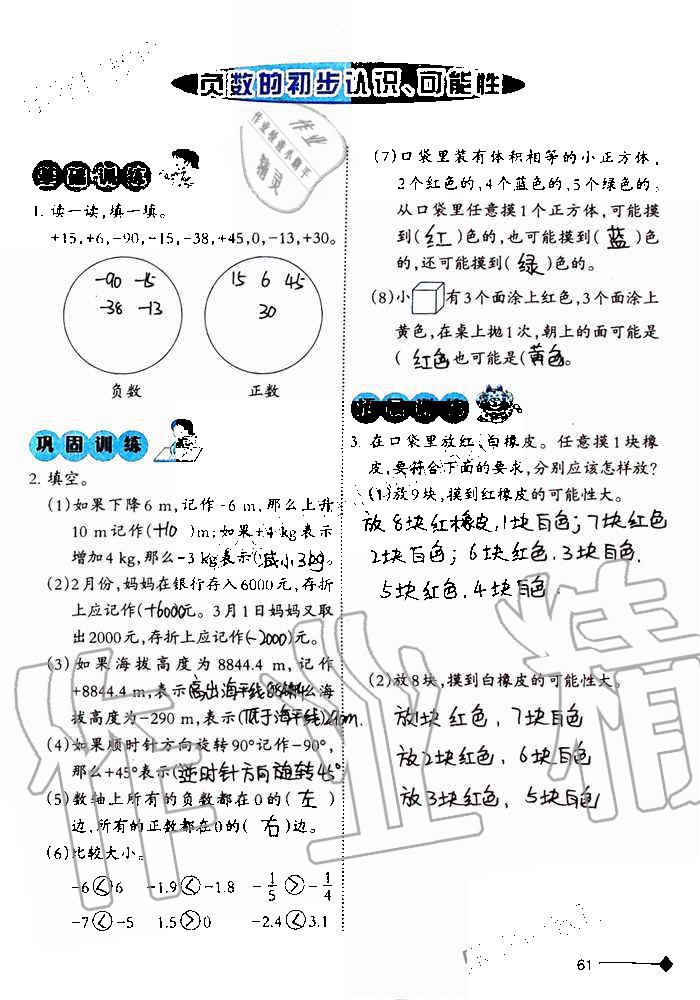 负数的初步认识、可能性
基础训练
1. 读一读,填一填。
+15,+6,-90,-15,-38,+45,0,-13,+30。
-90 -15
-38 -13
负数
15 6 45
30
正数
巩固训练
2. 填空。
(1)如果下降6 m,记作-6 m,那么上升
10 m记作(+10)m;如果+4 kg表示
增加4 kg,那么-3 kg表示(减小3kg)。
(2)2月份,妈妈在银行存入6000元,存折
上应记作(+6000)元。3月1日妈妈又取
出2000元,存折上应记作(-2000)元。
(3)如果海拔高度为8844.4 m,记作
+8844.4 m,表示(高出海平线8844.4
拔高度为-290 m,表示(低于海平线
(4)如果顺时针方向旋转90°记作-90°,
那么+45°表示(逆时针方向旋转45°)
(5)数轴上所有的负数都在0的(左)
边,所有的正数都在0的(右)边。
(6)比较大小。
-6<6 -1.9<-1.8 -1/5>-1/4
-7<-5 1.5>0 -2.4<3.1
(7)口袋里装有体积相等的小正方体,
2个红色的,4个蓝色的,5个绿色的。
从口袋里任意摸1个正方体,可能摸
到(红)色的,也可能摸到(蓝)色
的,还可能摸到(绿)色的。
(8)小 有3个面涂上红色,3个面涂上
黄色,在桌上抛1次,朝上的面可能是
(红色也可能是(黄色)。
3. 在口袋里放红、白橡皮。任意摸1块橡
皮,要符合下面的要求,分别应该怎样放?
(1)放9块,摸到红橡皮的可能性大。
放8块红橡皮,1块白色;7块红色
2块白色;6块红色,3块白色
5块红色,4块白色
(2)放8块,摸到白橡皮的可能性大。
放1块红色,7块白色
放2块红色,6块白色
放3块红色,5块白色
61
作业精
作业
作业检查小助手
精灵